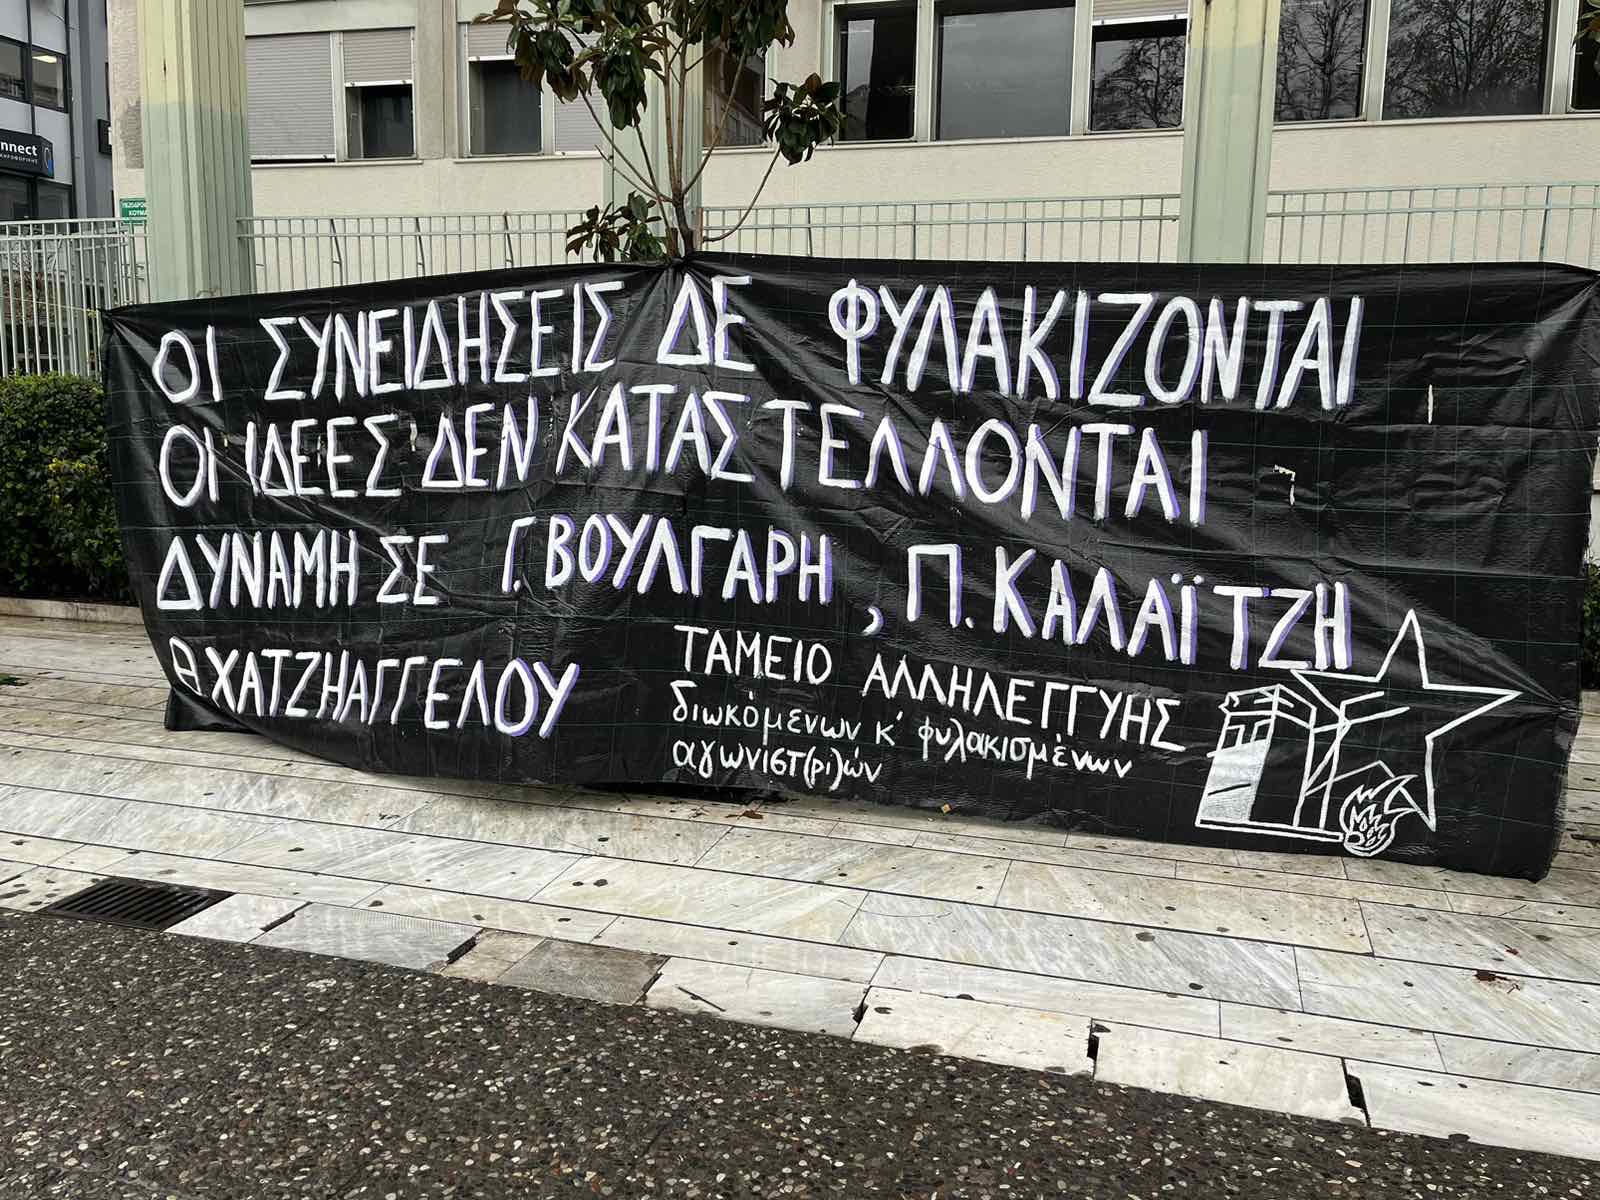 nnect
ΟΙ ΣΥΝΕΙΔΗΣΕΙΣ ΔΕ ΦΥΛΑΚΙΖΟΝΤΑΙ
ΟΙ ΙΔΕΕΣ ΔΕΝ ΚΑΤΑΣΤΕΛΛΟΝΤΑΙ
ΔΥΝΑΜΗ ΣΕ Γ. ΒΟΥΛΓΑΡΗ, Π. ΚΑΛΑΪΤΖΗ
Θ ΧΑΤΖΗΑΓΓΕΛΟΥ
ΤΑΜΕΙΟ ΑΛΛΗΛΕΓΓΥΗΣ
διωκόμενων κ' φυλακισμένων
αγωνιστ(ρι)ών